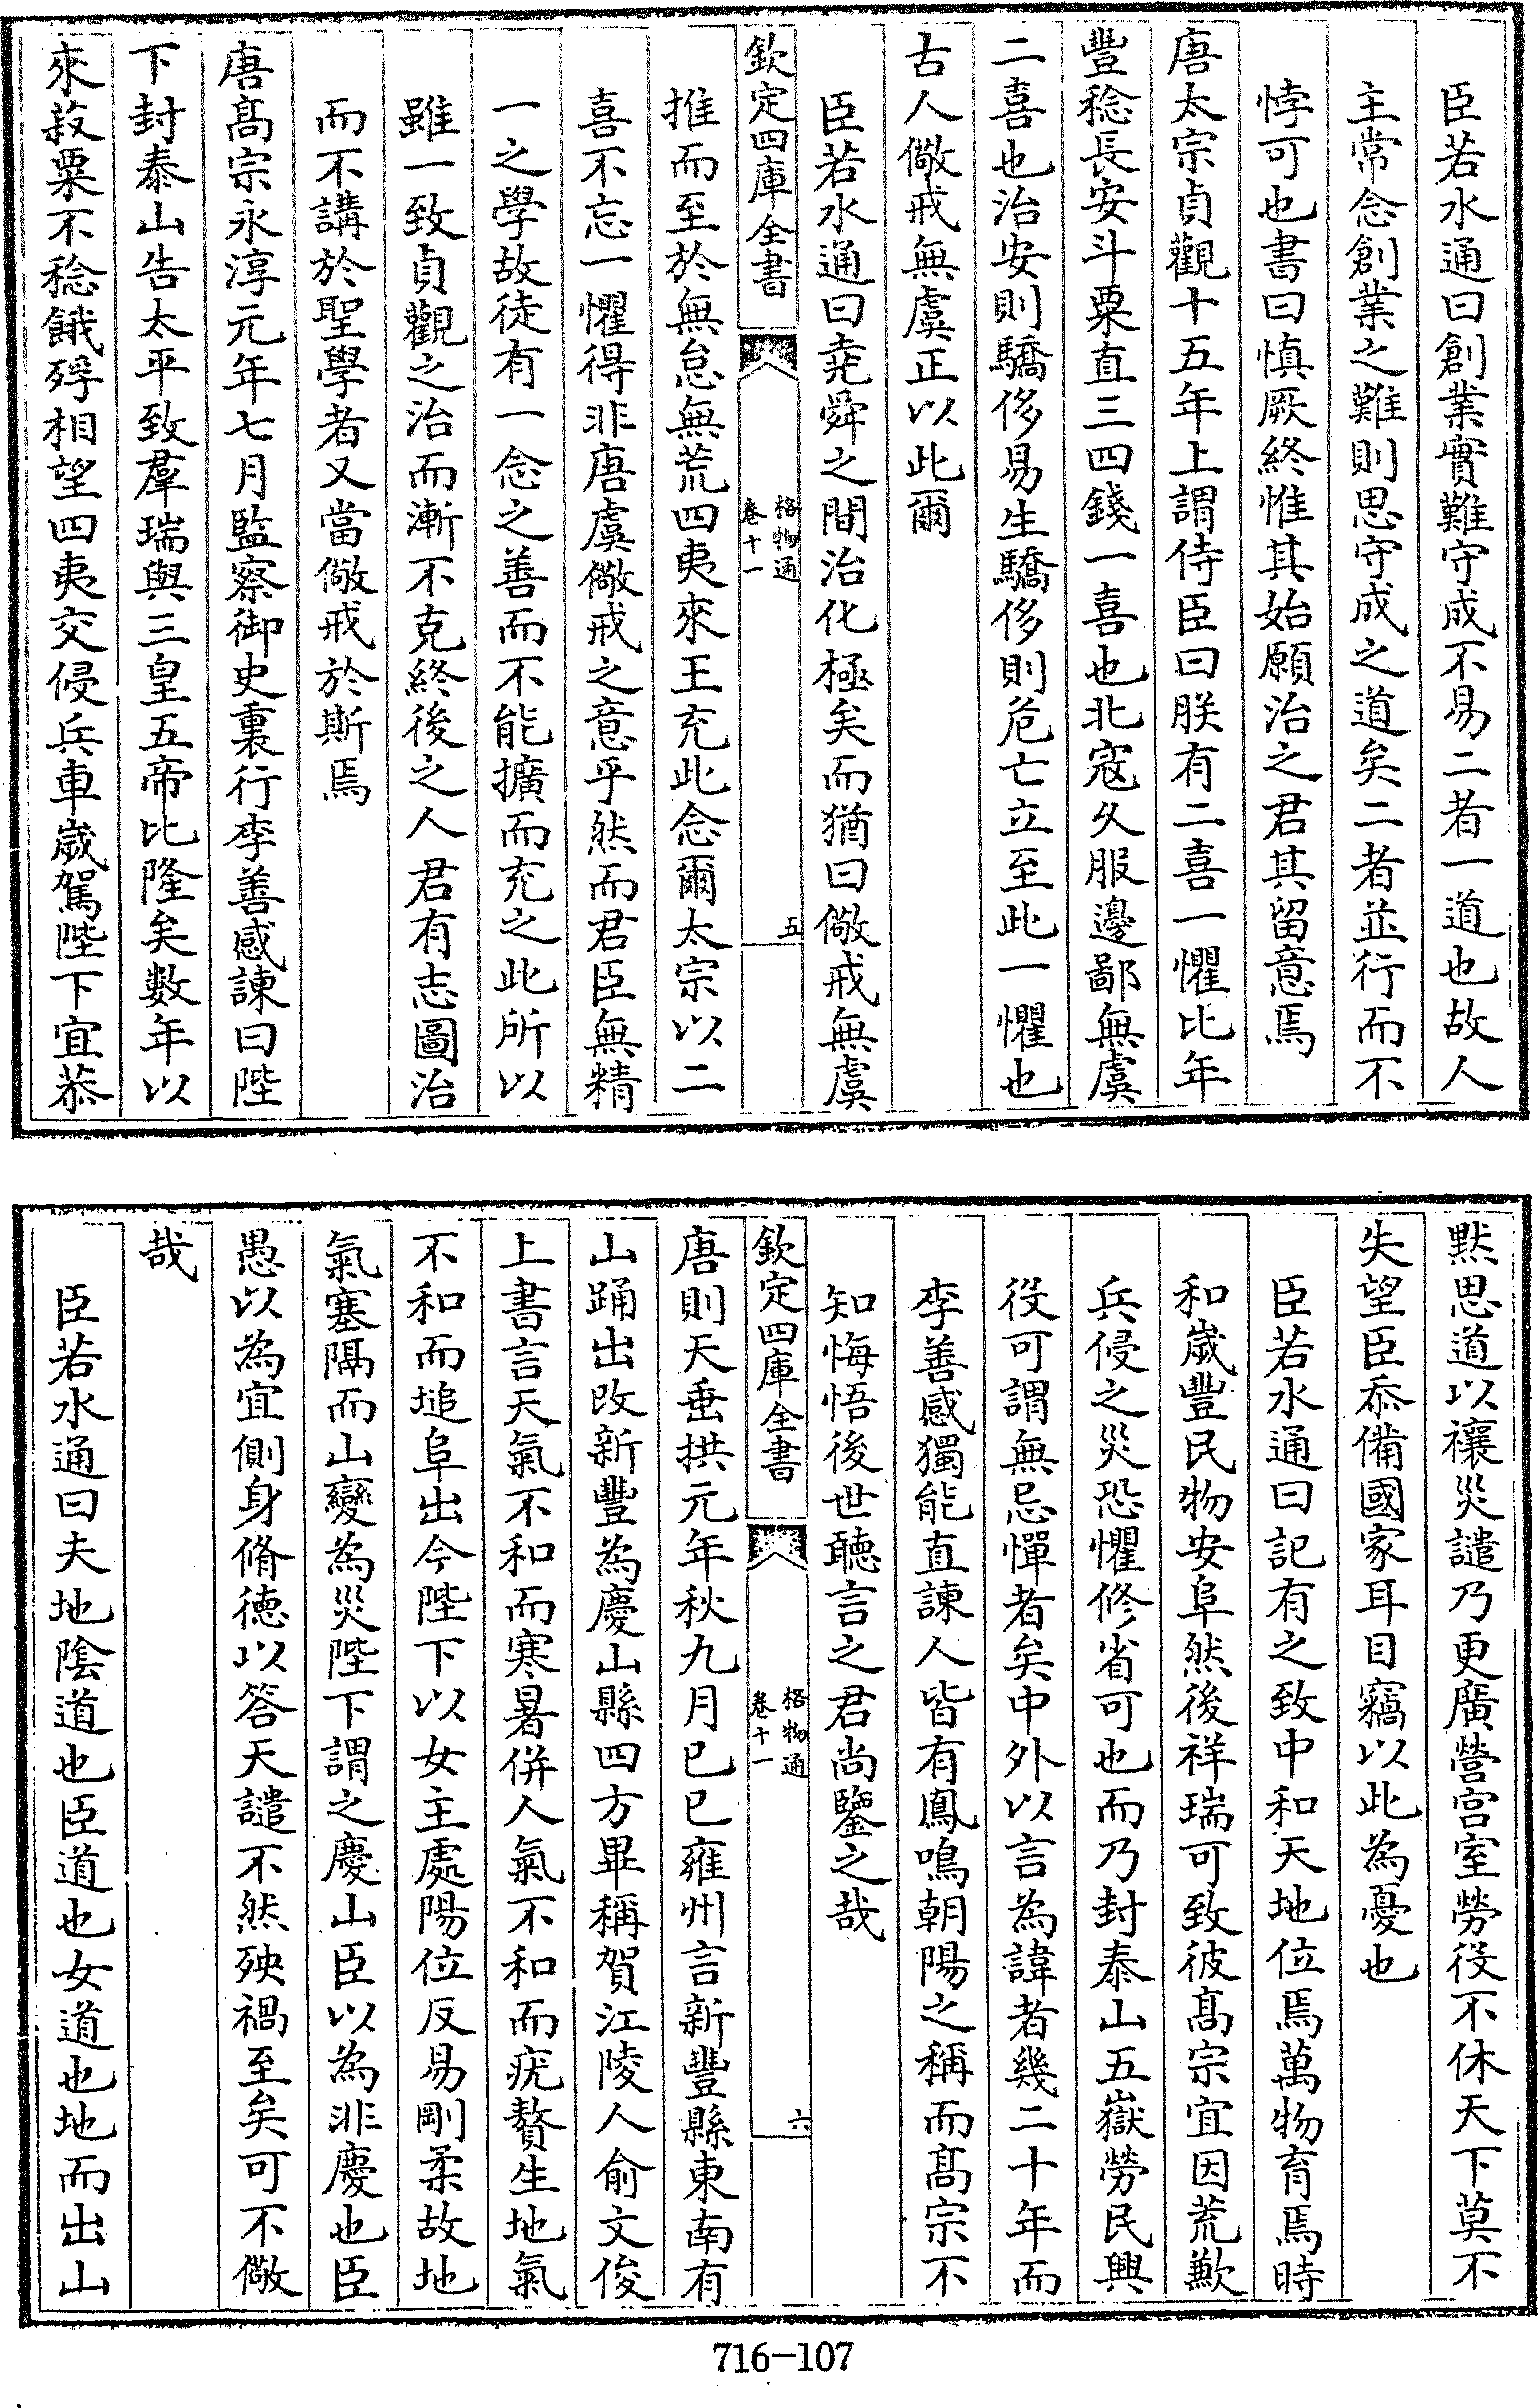 臣若水通曰創業實難守成不易二者一道也故人
主常念創業之難則思守成之道矣二者並行而不
悖可也書曰慎厥終惟其始願治之君其留意焉
唐太宗貞觀十五年上謂侍臣曰朕有二喜一懼比年
豐稔長安斗粟直三四錢一喜也北寇久服邊鄙無虞
二喜也治安則驕侈易生驕侈則危亡立至此一懼也
古人儆戒無虞正以此爾
臣若水通曰堯舜之間治化極矣而猶曰儆戒無虞
欽定四庫全書
格物通
卷十一
五
推而至於無怠無荒四夷來王充此念爾太宗以二
喜不忘一懼得非唐虞儆戒之意乎然而君臣無精
一之學故徒有一念之善而不能擴而充之此所以
雖一致貞觀之治而漸不克終後之人君有志圖治
而不講於聖學者又當儆戒於斯焉
唐髙宗永淳元年七月監察御史裏行李善感諫曰陛
下封泰山告太平致羣瑞與三皇五帝比隆矣數年以
來菽粟不稔餓殍相望四夷交侵兵車歲駕陛下宜恭
黙思道以禳災譴乃更廣營宫室勞役不休天下莫不
失望臣忝備國家耳目竊以此為憂也
臣若水通曰記有之致中和天地位焉萬物育焉時
和歲豐民物安阜然後祥瑞可致彼髙宗宜因荒歉
兵侵之災恐懼修省可也而乃封泰山五嶽勞民興
役可謂無忌憚者矣中外以言為諱者幾二十年而
李善感獨能直諫人皆有鳳鳴朝陽之稱而髙宗不
知悔悟後世聽言之君尚鑒之哉
欽定四庫全書
格物通
卷十一
六
唐則天垂拱元年秋九月已巳雍州言新豐縣東南有
山踊出改新豐為慶山縣四方畢稱賀江陵人俞文俊
上書言天氣不和而寒暑併人氣不和而疣贅生地氣
不和而塠阜出今陛下以女主處陽位反易剛柔故地
氣塞隔而山變為災陛下謂之慶山臣以為非慶也臣
愚以為宜側身脩德以答天譴不然殃禍至矣可不儆
哉
臣若水通曰夫地陰道也臣道也女道也地而出山
716-107